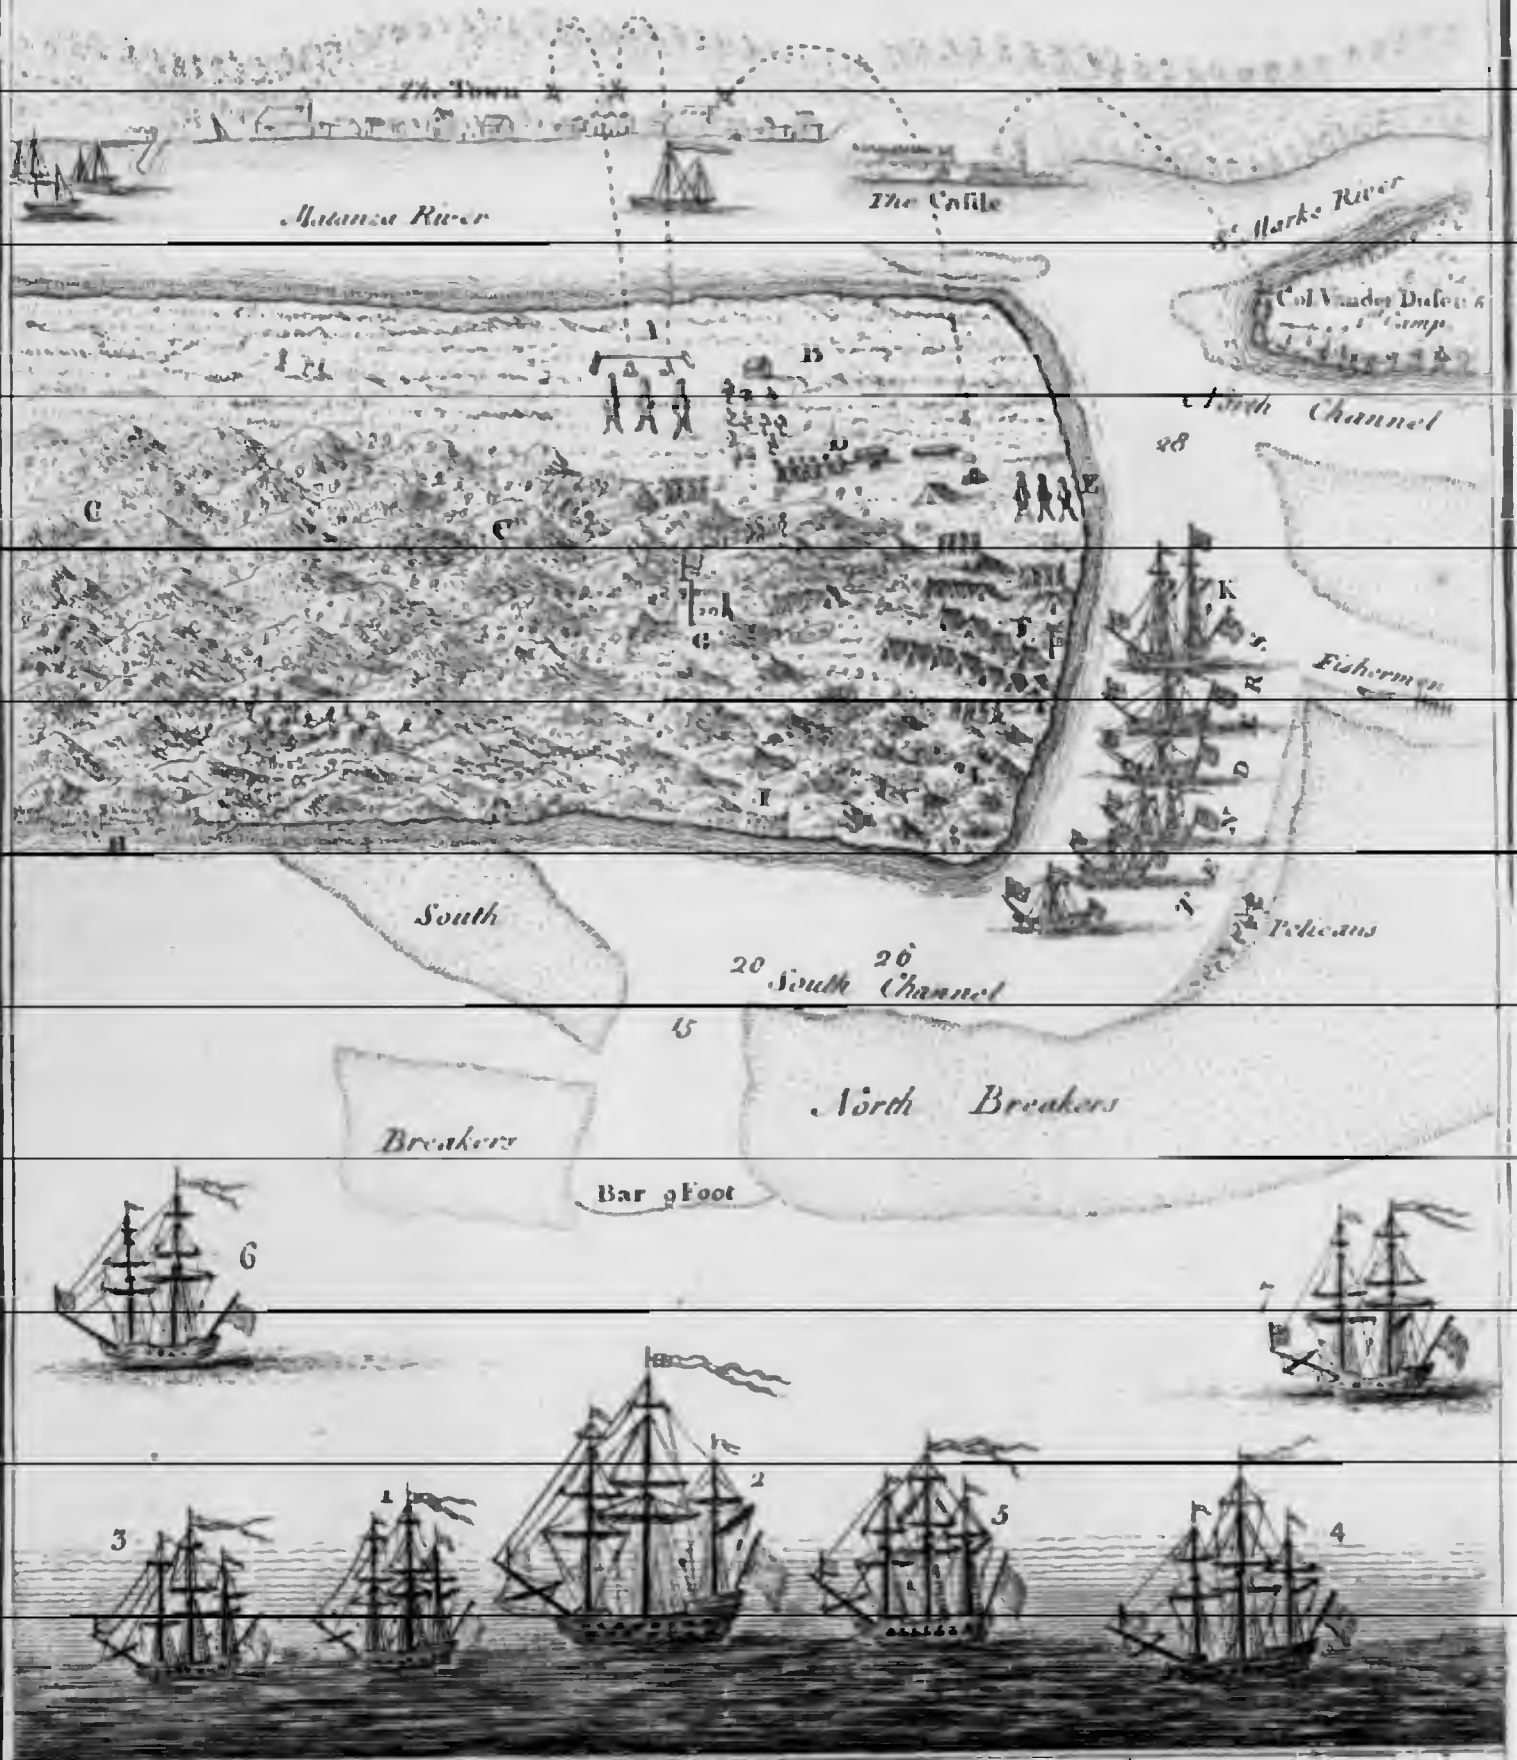 The Town
The Castle
Matanza River
St Marks River
Col Vander Dusen's
1st Camp
I
B
North Channel
28
D
E
C
C
K
G
Fishermen
R
D
L
I
H
N
T
South
Pelicans
20
26
South Channel
15
North Breakers
Breakers
Bar 9 Foot
6
7
2
1
3
5
4